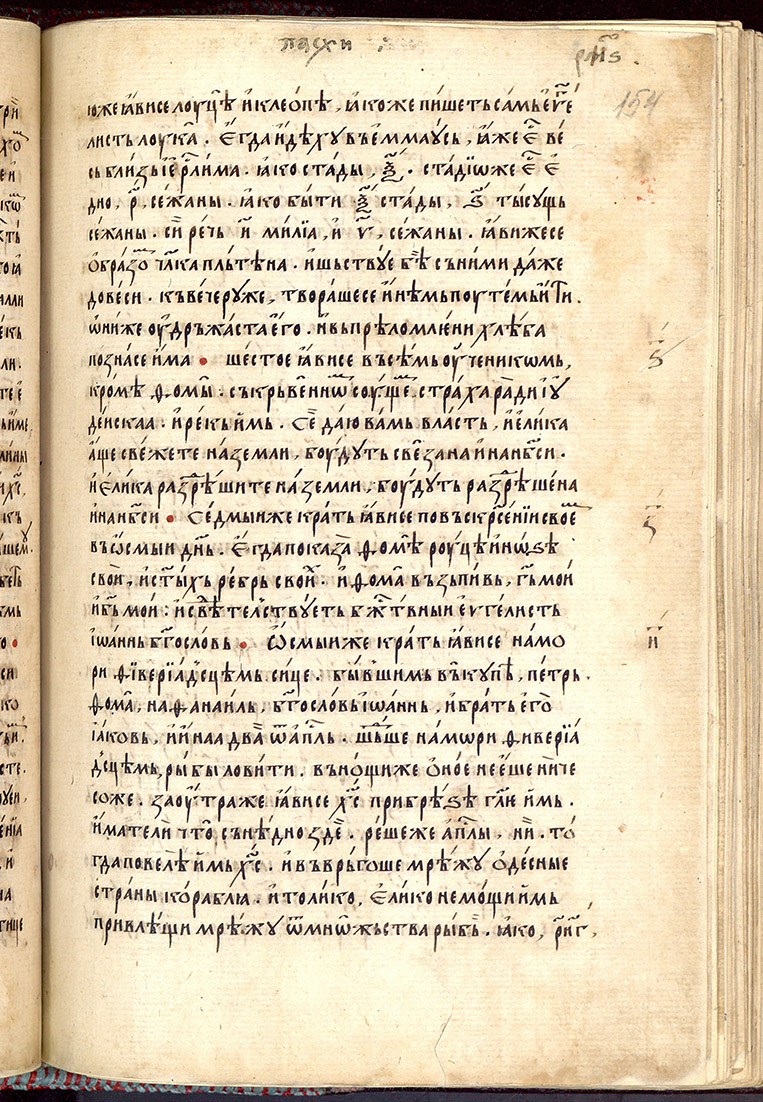 пасхи
рн҃ѕ.
154
юже ꙗвисе лоуцѣ и клеопѣ, ꙗкоже пишеть самь еѵ҃ге
листь лоука. Егда идѣху въ еммаусь, ꙗже е҃ ве
сь близь іе҃рлима. ꙗко стады, ѯ҃. стадїѡже е҃ е
дно, р҃, сежаны. ꙗко быти ѯ҃ стады, ѕ҃ тысущь
сежаны. си речь и҃ милїа, и у҃, сежаны. ꙗвижесе
ѡбразо чл҃ка пльтѣна. и шьствуе б҃ѣ съ ними даже
до веси. къ вечеру же, творашесе инѣмь поутемь ити.
ѡниже оудръжаста его. и вь прѣломлюени хлѣба
познасе има • шестое ꙗвисе въсѣмь оученикѡмь,
кромѣ ѳомы: съкрьвенниѡ соуще страха ради іу
деискаа. и рекь имь. Се даю вамь власть, и елика
аще свежете на земли, боудуть свезана и на нб҃си.
и елика разрѣшите на земли, боудуть разрѣшена
и на нб҃си • Седмыиже крать ꙗвисе по въскр҃сенїи свое
ѕ҃
въ ѡсмыи дн҃ь. Егда показа ѳомѣ роуцѣ и нѡѕѣ
з҃
свои, и ст҃ыхъ ребрь свои. и ѳома възьпивь, г҃ь мои
и б҃ь мои: и свѣтелствуеть бж҃твныи еѵг҃елисть
іѡаннь бг҃ословь • Ѡсмыиже крать ꙗвисе на мо
и҃
ри ѳїверїадсцѣмь сице. бывшимь вькупѣ, петрь.
ѳома, наѳанаиль, бг҃ословь іѡаннь, и брать его
іаковь, и инаа два ѿ ап҃ль. шьше на мѡри ѳиверїа
дсцѣмь, рыбы ловити. въ нощиже ѻное не еше ниче
соже. заоутраже ꙗвисе х҃с при брѣѕѣ гл҃ѥ имь.
имателі что сънѣдно зде. решеже ап҃лы, ни. то
гда повелѣ имь х҃с. и въврьгоше мрѣжу ѻдесные
страны корабла. и толико, Елико не мощи имь
привлѣщи мрѣжу ѿ мнѡжьства рыбь. ꙗко, рн҃г,